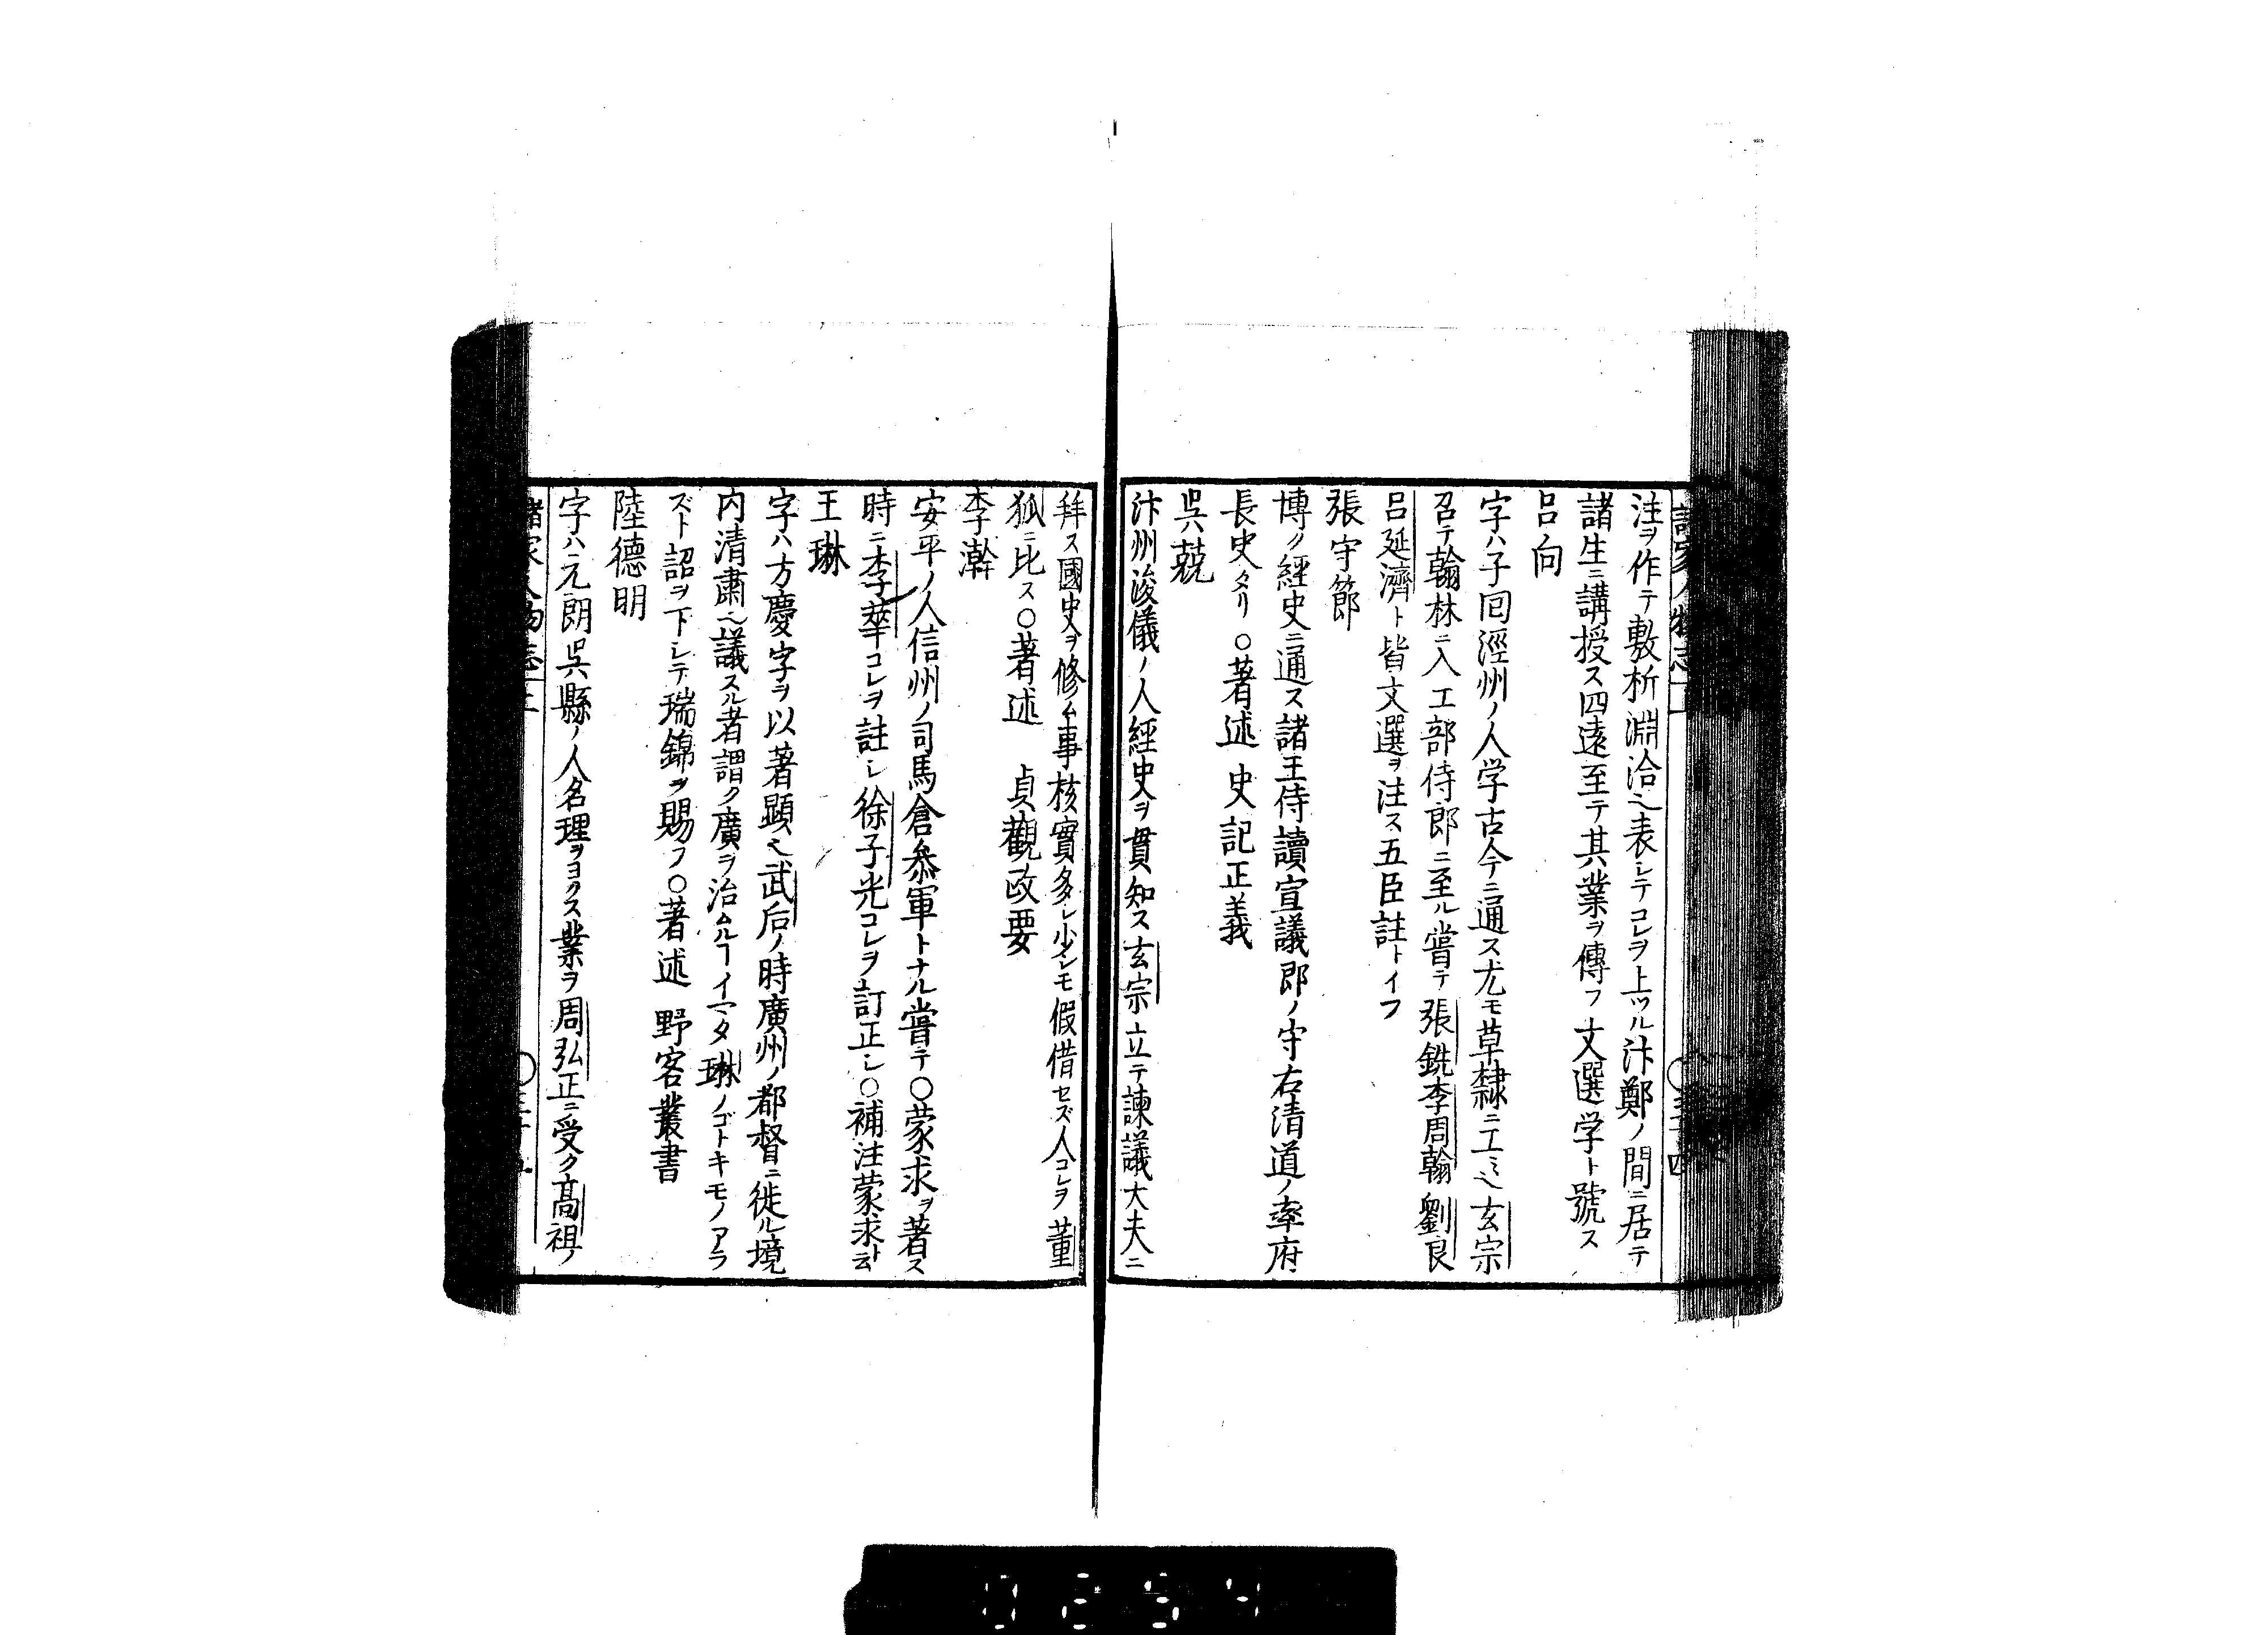 注ヲ作テ敷析淵洽乄表レテコレヲ上ツル汴鄭ノ間ニ居テ
諸生ニ講授ス四遠至テ其業ヲ傳フ文選学ト號ス
呂向
字ハ子回涇州ノ人学古今ニ通ス尤モ草隸ニ工ミ乄玄宗
召テ翰林ニ入工部侍郎ニ至ル嘗テ張銑李周翰劉良
呂延濟ト皆文選ヲ注ス五臣註トイフ
張守節
博ク經史ニ通ス諸王侍讀宣議郎ノ守右清道ノ率府
長史タリ○著述 史記正義
呉兢
汴州浚儀ノ人經史ヲ貫知ス玄宗立テ諫議大夫ニ
拜ス國史ヲ修ム事核實多レ少シモ假借セズ人コレヲ董
狐ニ比ス○著述 貞觀政要
李瀚
安平ノ人信州ノ司馬倉叅軍トナル嘗テ○蒙求ヲ著ス
時ニ李華コレヲ註レ徐子光コレヲ訂正レ○補注蒙求ト云
王琳
字ハ方慶字ヲ以著顕乄武后ノ時廣州ノ都督ニ徙ル境
内清肅乄議スル者謂ク廣ヲ治ムルヿイマタ琳ノゴトキモノアラ
ズト詔ヲ下レテ瑞錦ヲ賜フ○著述 野客叢書
陸德明
字ハ元朗呉縣ノ人名理ヲヨクス業ヲ周弘正ニ受ク髙祖ノ